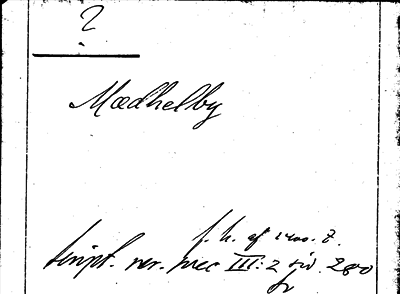 ?
Mædhelby
f. h. af 1400. t.
Script. rer. svec III: 2 sid. 280